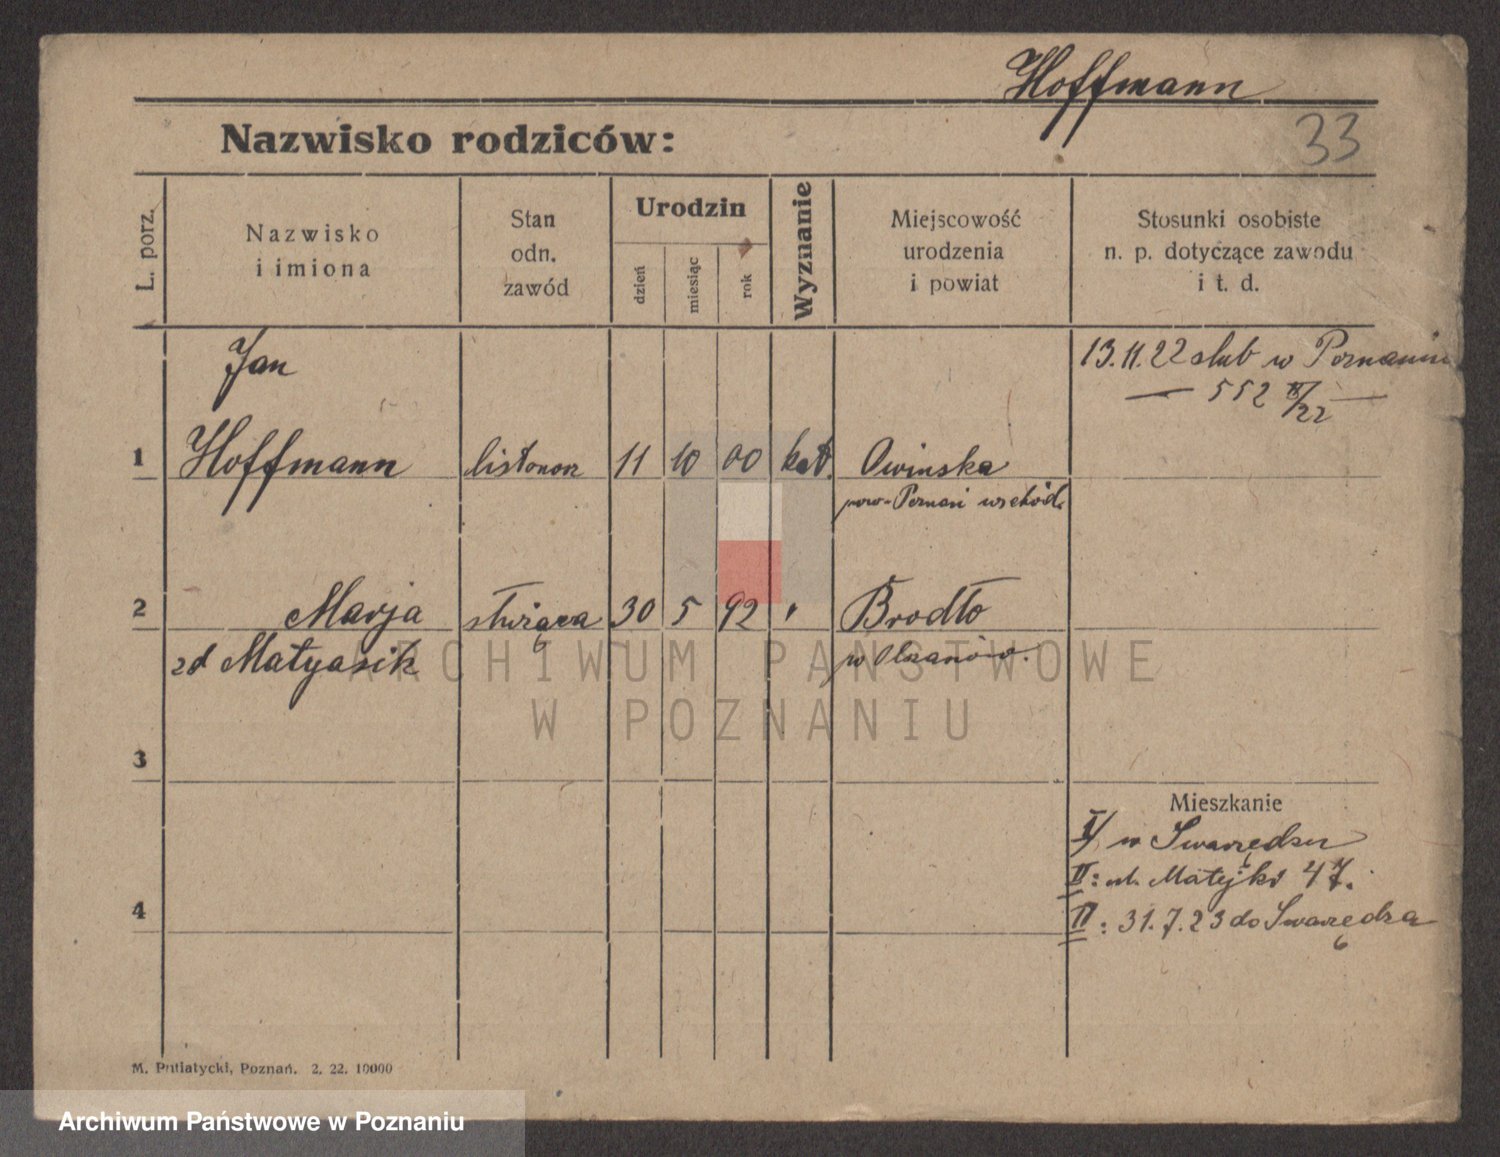 Hoffmann
33
Nazwisko rodziców:
L. porz.
Nazwisko
i imiona
Stan
odn.
zawód
Urodzin
dzień
miesiąc
rok
Wyznanie
Miejscowość
urodzenia
i powiat
Stosunki osobiste
n. p. dotyczące zawodu
i t. d.
Jan
13.11.22 slub w Poznaniu
— 552 /22 —
1 Hoffmann listonon 11 10 00 kat. Owinska
pow-Poznań wschód.
2 Marja 30 5 92 " Brodło
zd Matyasik
ARCHIWUM PAŃSTWOWE
W POZNANIU
3
Mieszkanie
I/ w Swarzędzu
II: ul. Matejki 47.
31.7.23 do Swarzędza
4
M. Putiatycki, Poznań. 2. 22. 10000
Archiwum Państwowe w Poznaniu